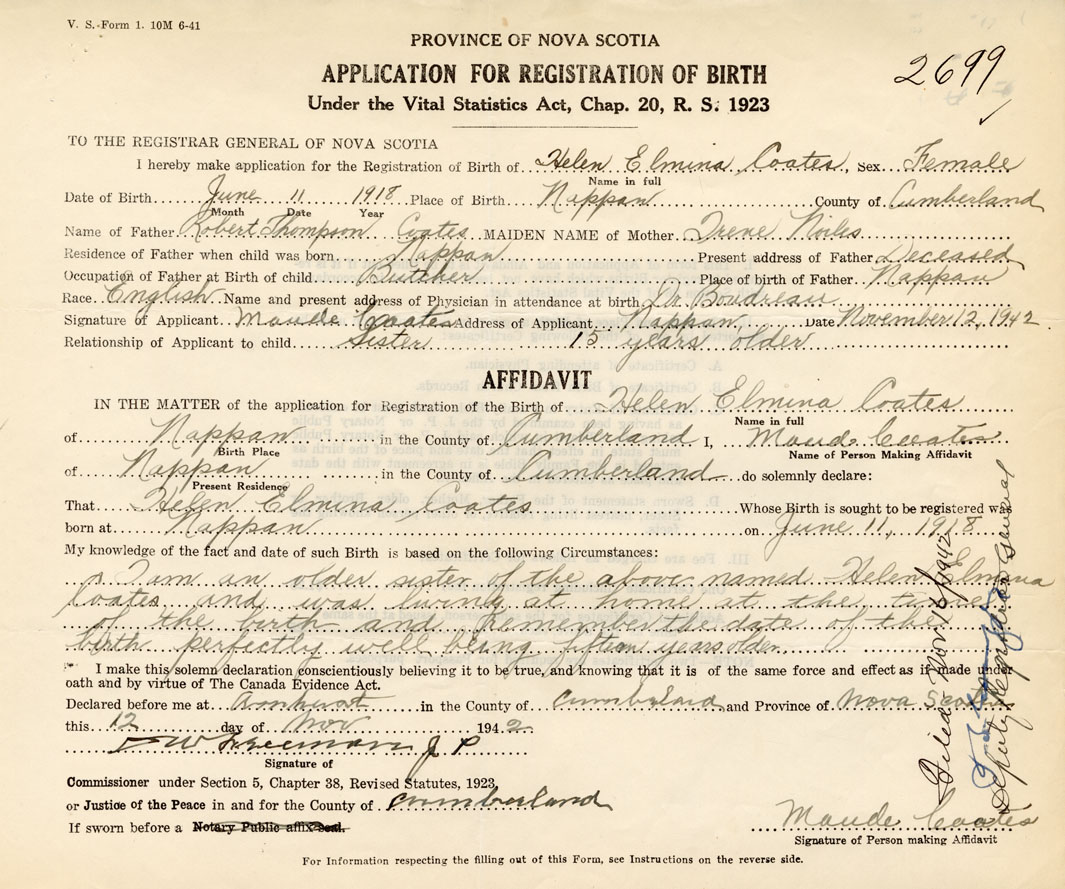 V. S.-Form 1. 10M 6-41
PROVINCE OF NOVA SCOTIA
APPLICATION FOR REGISTRATION OF BIRTH
2699
Under the Vital Statistics Act, Chap. 20, R. S. 1923
TO THE REGISTRAR GENERAL OF NOVA SCOTIA
I hereby make application for the Registration of Birth of Helen Elmina Coates, Sex Female
Name in full
Date of Birth June 11 1918 Place of Birth Nappan County of Cumberland
Month Date Year
Name of Father Robert Thompson Coates MAIDEN NAME of Mother Irene Noiles
Residence of Father when child was born Nappan Present address of Father Deceased
Occupation of Father at Birth of child Butcher Place of birth of Father Nappan
Race English Name and present address of Physician in attendance at birth Dr. Boudreau
Signature of Applicant Maude Coates Address of Applicant Nappan, Date November 12, 1942.
Relationship of Applicant to child Sister 15 years older
AFFIDAVIT
IN THE MATTER of the application for Registration of the Birth of Helen Elmina Coates
Name in full
of Nappan in the County of Cumberland I, Maude Coates
Birth Place Name of Person Making Affidavit
of Nappan in the County of Cumberland do solemnly declare:
Present Residence
That Helen Elmina Coates Whose Birth is sought to be registered was
born at Nappan on June 11, 1918
My knowledge of the fact and date of such Birth is based on the following Circumstances:
I am an older sister of the above named Helen Elmina
Coates and was living at home at the time
of the birth and remember the date of the
birth perfectly well being fifteen years older
I make this solemn declaration conscientiously believing it to be true, and knowing that it is of the same force and effect as if made under
oath and by virtue of The Canada Evidence Act.
Declared before me at Amherst in the County of Cumberland, and Province of Nova Scotia
this 12 day of Nov 1942
Freeman J P
Signature of
Commissioner under Section 5, Chapter 38, Revised Statutes, 1923,
or Justice of the Peace in and for the County of Cumberland
If sworn before a Notary Public affix Seal.
Maude Coates
Signature of Person making Affidavit
For Information respecting the filling out of this Form, see Instructions on the reverse side.
Filed Nov. 16/1942
Deputy Registrar General